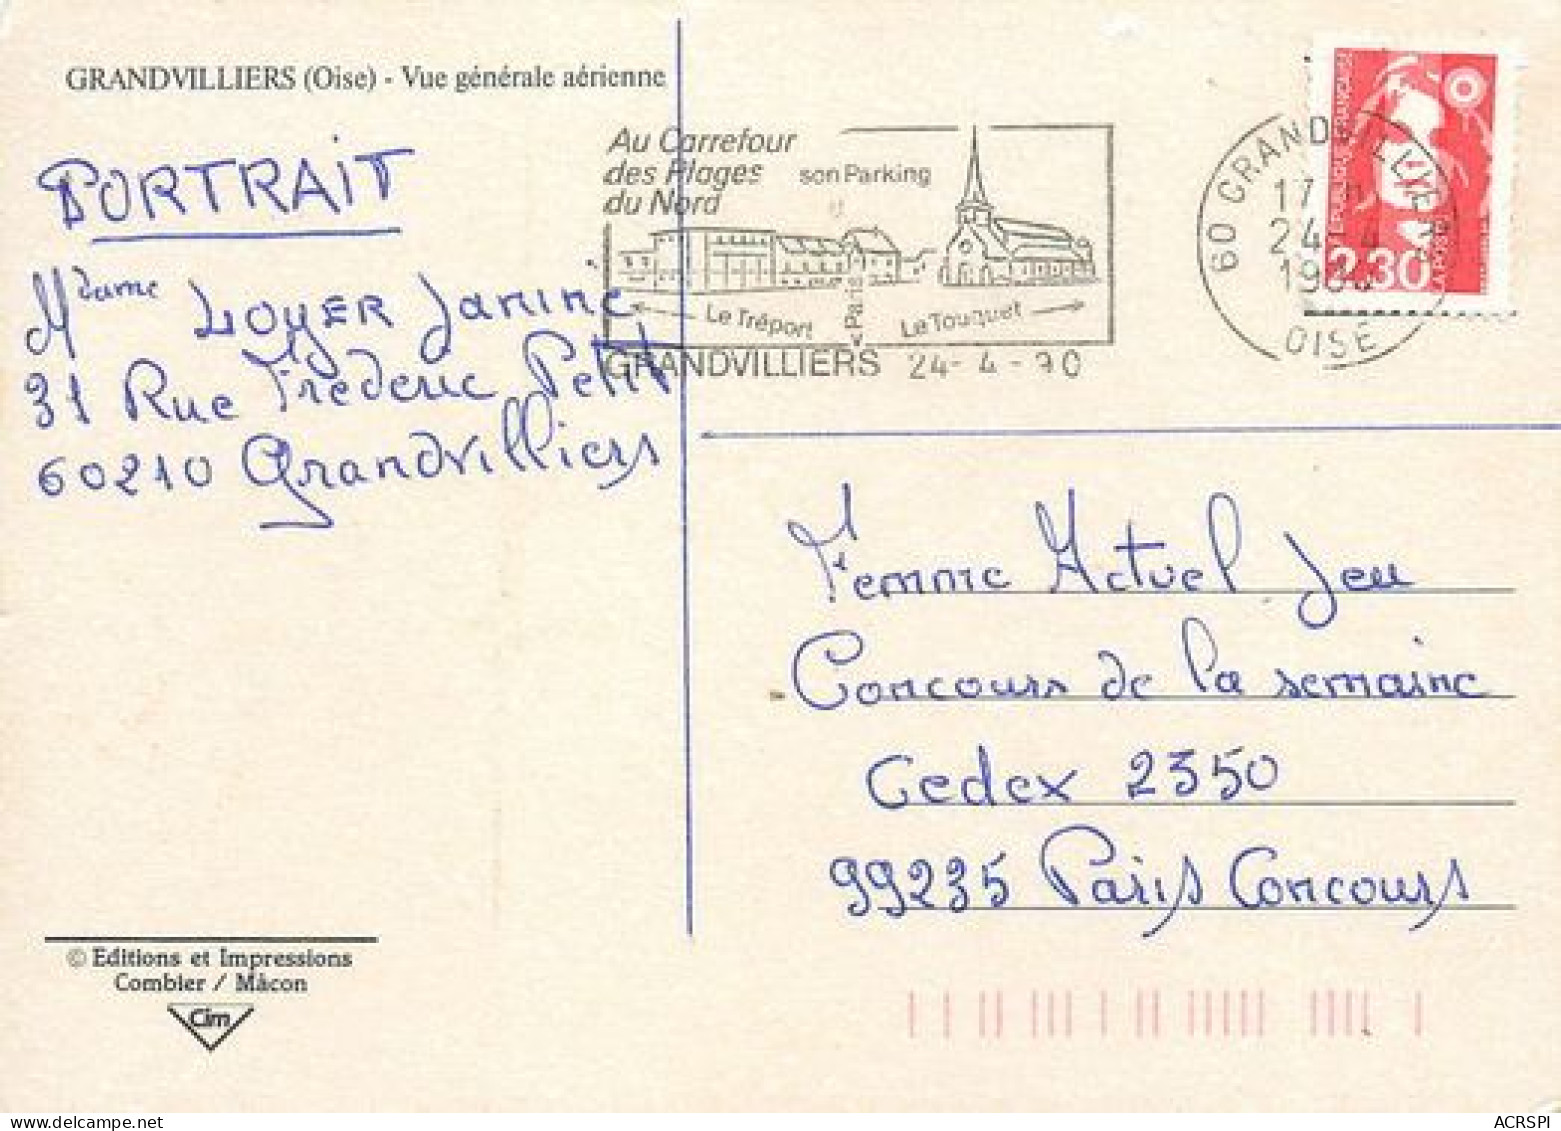 GRANDVILLIERS (Oise) - Vue générale aérienne
PORTRAIT
Mdame LOYER Janine
31 Rue Frédéric Petit
60210 Grandvilliers
Au Carrefour
des Plages
du Nord
son Parking
Le Tréport
< Paris
Le Touquet
GRANDVILLIERS 24-4-90
60 GRANDVILLIERS
17 H
24-4
1990
OISE
REPUBLIQUE FRANÇAISE
2,30
LA POSTE
Femme Actuel Jeu
Concours de la semaine
Cedex 2350
99235 Paris Concours
© Editions et Impressions
Combier / Mâcon
Cim
ACRSPI